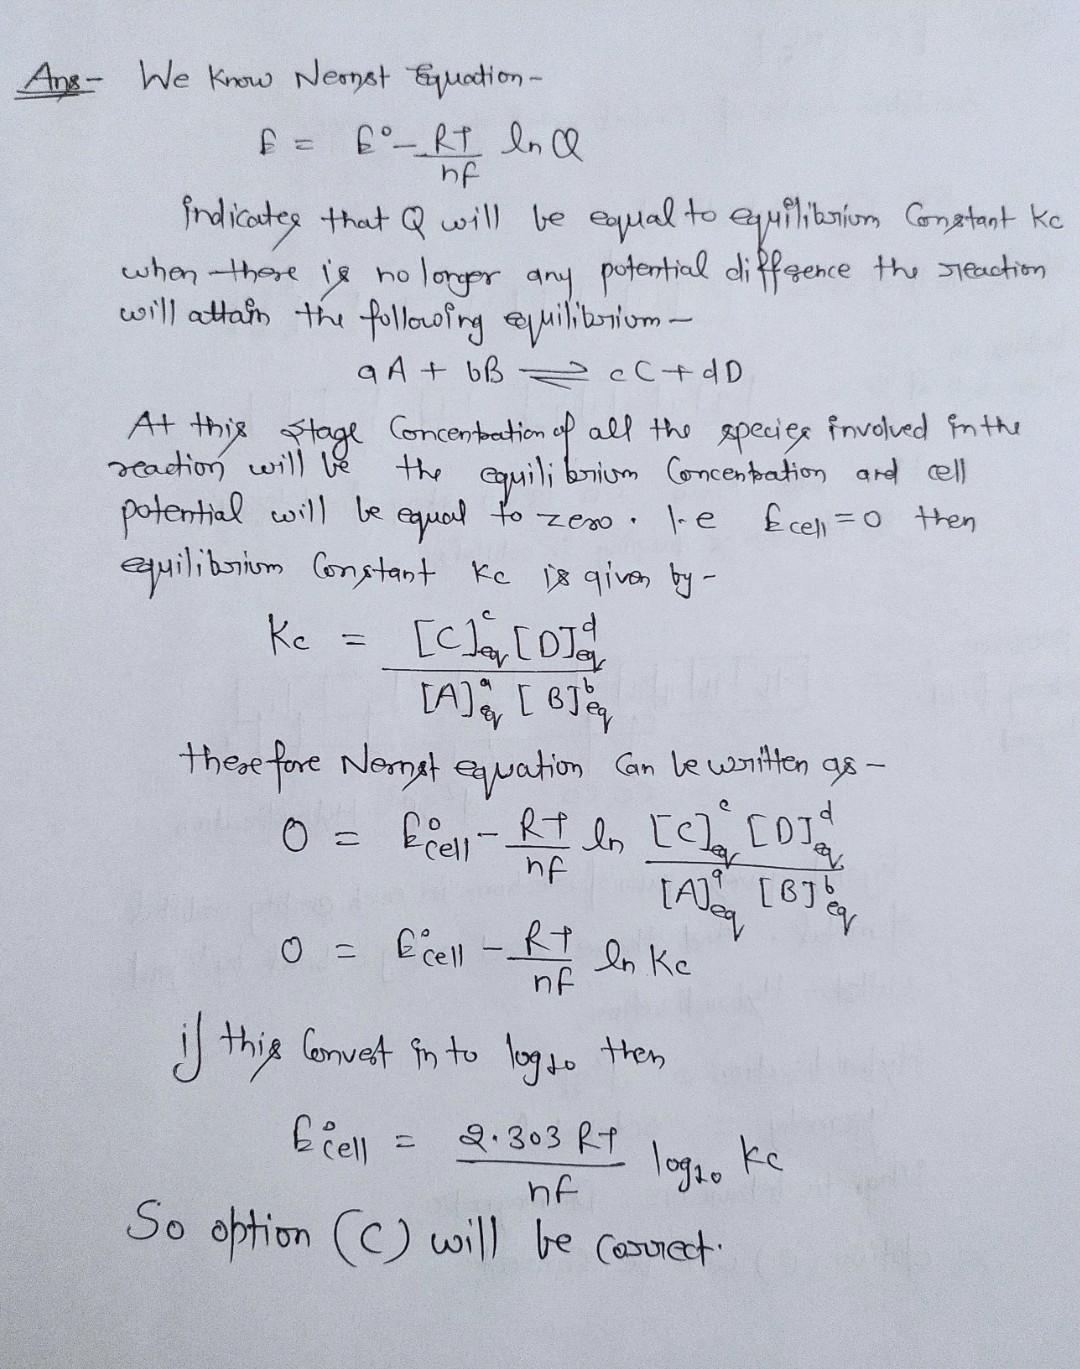 Ans- We Know Nernst Equation-
E = E° - RT/nF ln Q
indicates that Q will be equal to equilibrium Constant Kc
when there is no longer any potential difference the reaction
will attain the following equilibrium-
aA + bB ⇌ cC + dD
At this stage Concentration of all the species involved in the
reaction will be the equilibrium Concentration and cell
potential will be equal to zero. I.e Ecell = 0 then
equilibrium Constant Kc is given by-
Kc = [C]^c_eq [D]^d_eq / [A]^a_eq [B]^b_eq
therefore Nernst equation Can be written as-
0 = E°cell - RT/nF ln [C]^c_eq [D]^d_eq / [A]^a_eq [B]^b_eq
0 = E°cell - RT/nF ln Kc
if this Convest in to log10 then
E°cell = 2.303 RT/nF log10 Kc
So option (C) will be correct.